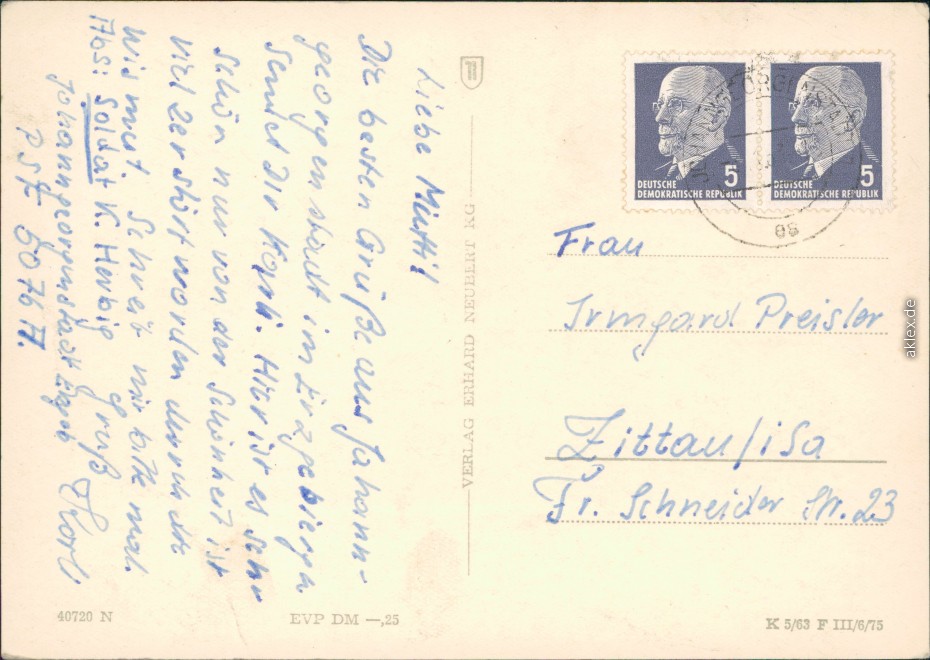 Liebe Mutti!
Die besten Grüße aus Johann-
georgenstadt im Erzgebierge
sendet Dir Karli. Hier ist es sehr
schön nur von der Schönheit ist
viel zerstört worden durch die
Wismut. Schreib mir bitte mal.
Abs: Soldat K. Herbig Gruß Karl
Johanngeorgenstadt Erzgeb
PSF 5076 A.
VERLAG ERHARD NEUBERT KG
5
DEUTSCHE
DEMOKRATISCHE REPUBLIK
5
DEUTSCHE
DEMOKRATISCHE REPUBLIK
Frau
Irmgard Preisler
Zittau/i Sa
Fr. Schneider Str. 23
40720 N
EVP DM —,25
K 5/63 F III/6/75
aklex.de